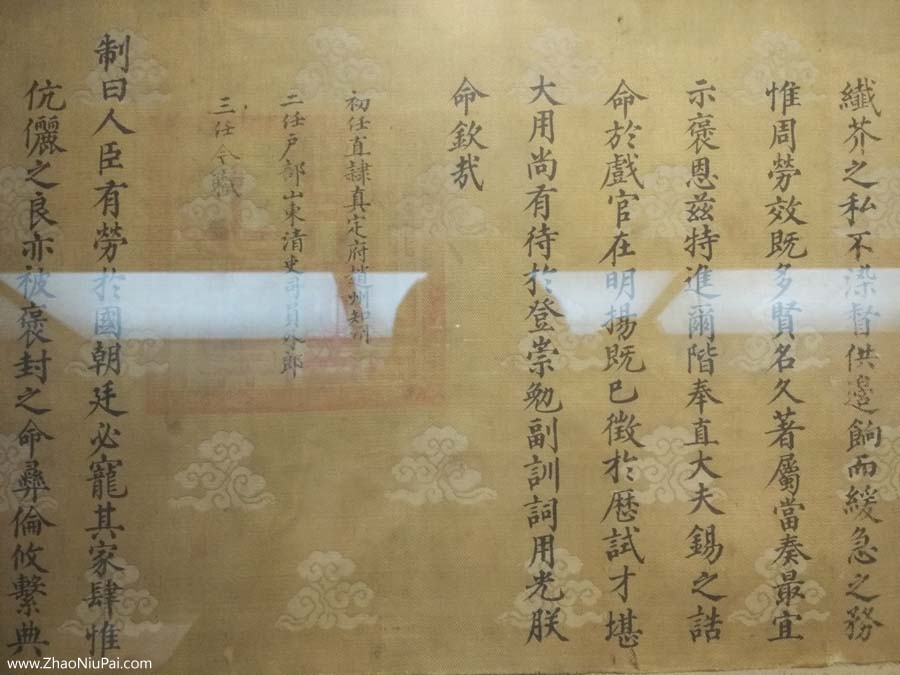 纖芥之私不染督供邊餉而緩急之務
惟周勞效既多賢名久著屬當奏最宜
示褒恩茲特進爾階奉直大夫錫之誥
命於戲官在明揚既已徵於歷試才堪
大用尚有待於登崇勉副訓詞用光朕
命欽哉
初任直隸真定府趙州知州
二任戶部山東清吏司員外郎
三任今職
制曰人臣有勞於國朝廷必寵其家肆惟
伉儷之良亦被褒封之命彝倫攸繫典
www.ZhaoNiuPai.com